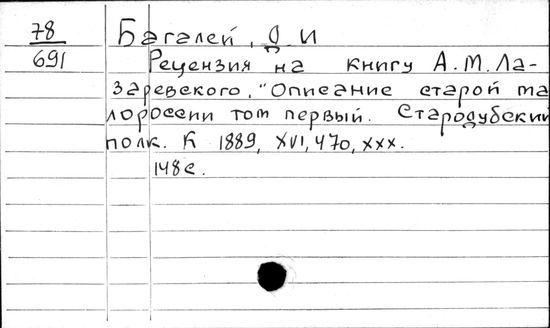 78
691
Багалей, Д. И
Рецензия на книгу А.М.Ла-
заревского, "Описание старой ма
лороссеии том первый. Стародубский
полк. К 1889, XVI, 470, XXX.
148с.